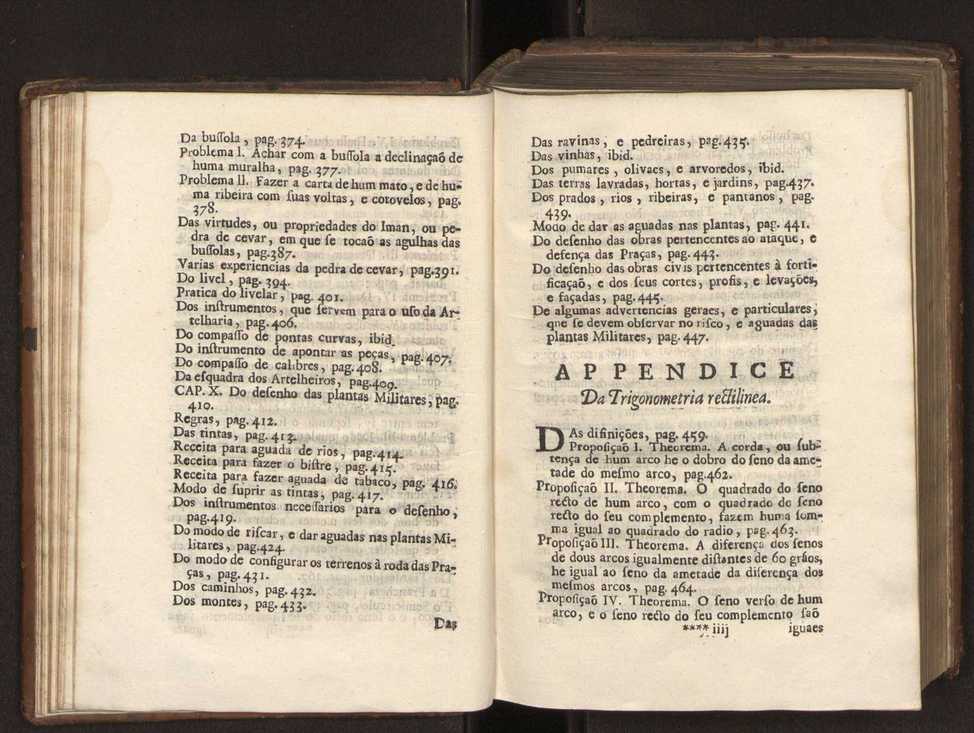 Da buſſola, pag. 374.
Problema I. Achar com a buſſola a declinaçaõ de
huma muralha, pag. 377.
Problema II. Fazer a carta de hum mato, e de hu-
ma ribeira com ſuas voltas, e cotovelos, pag.
378.
Das virtudes, ou propriedades do Iman, ou pe-
dra de cevar, em que ſe tocaõ as agulhas das
buſſolas, pag. 387.
Varias experiencias da pedra de cevar, pag. 391.
Do livel, pag. 394.
Pratica do livelar, pag. 401.
Dos inſtrumentos, que ſervem para o uſo da Ar-
telharia, pag. 406.
Do compaſſo de pontas curvas, ibid.
Do inſtrumento de apontar as peças, pag. 407.
Do compaſſo de calibres, pag. 408.
Da eſquadra dos Artelheiros, pag. 409.
CAP. X. Do deſenho das plantas Militares, pag.
410.
Regras, pag. 412.
Das tintas, pag. 413.
Receita para aguada de rios, pag. 414.
Receita para fazer o biſtre, pag. 415.
Receita para fazer aguada de tabaco, pag. 416.
Modo de ſuprir as tintas, pag. 417.
Dos inſtrumentos neceſſarios para o deſenho,
pag. 419.
Do modo de riſcar, e dar aguadas nas plantas Mi-
litares, pag. 424
Do modo de configurar os terrenos à roda das Pra-
ças, pag. 431.
Dos caminhos, pag. 432.
Dos montes, pag. 433.
Das
Das ravinas, e pedreiras, pag. 435.
Das vinhas, ibid.
Dos pumares, olivaes, e arvoredos, ibid.
Das terras lavradas, hortas, e jardins, pag. 437.
Dos prados, rios, ribeiras, e pantanos, pag.
439.
Modo de dar as aguadas nas plantas, pag. 441.
Do deſenho das obras pertencentes ao ataque, e
defença das Praças, pag. 443.
Do deſenho das obras civis pertencentes à forti-
ficaçaõ, e dos ſeus cortes, profis, e levações,
e façadas, pag. 445.
De algumas advertencias geraes, e particulares,
que ſe devem obſervar no riſco, e aguadas das
plantas Militares, pag. 447.
APPENDICE
Da Trigonometria rectilinea.
DAs difinições, pag. 459.
Propoſiçaõ I. Theorema. A corda, ou ſub-
tença de hum arco he o dobro do ſeno da ame-
tade do meſmo arco, pag. 462.
Propoſiçaõ II. Theorema. O quadrado do ſeno
recto de hum arco, com o quadrado do ſeno
recto do ſeu complemento, fazem huma ſom-
ma igual ao quadrado do radio, pag. 463.
Propoſiçaõ III. Theorema. A diferença dos ſenos
de dous arcos igualmente diſtantes de 60 grãos,
he igual ao ſeno da ametade da diferença dos
meſmos arcos, pag. 464.
Propoſiçaõ IV. Theorema. O ſeno verſo de hum
arco, e o ſeno recto do ſeu complemento ſaõ
**** iiij iguaes